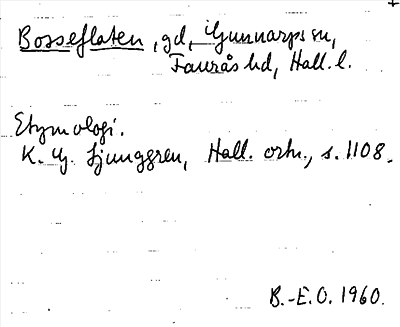 Bosseflaten, gd, Gunnarps sn,
Faurås hd, Hall. l.
Etymologi.
K. G. Ljunggren, Hall. ortn., s. 1108.
B.-E.O. 1960.